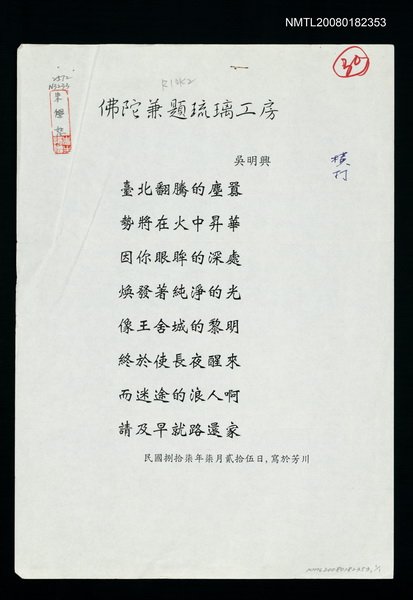 NMTL20080182353
30
R12K2
佛陀兼題琉璃工房
吳明興
橫打
臺北翻騰的塵囂
勢將在火中昇華
因你眼眸的深處
煥發著純淨的光
像王舍城的黎明
終於使長夜醒來
而迷途的浪人啊
請及早就路還家
民國捌拾柒年柒月貳拾伍日，寫於芳川
NMTL20080182353, 1/1